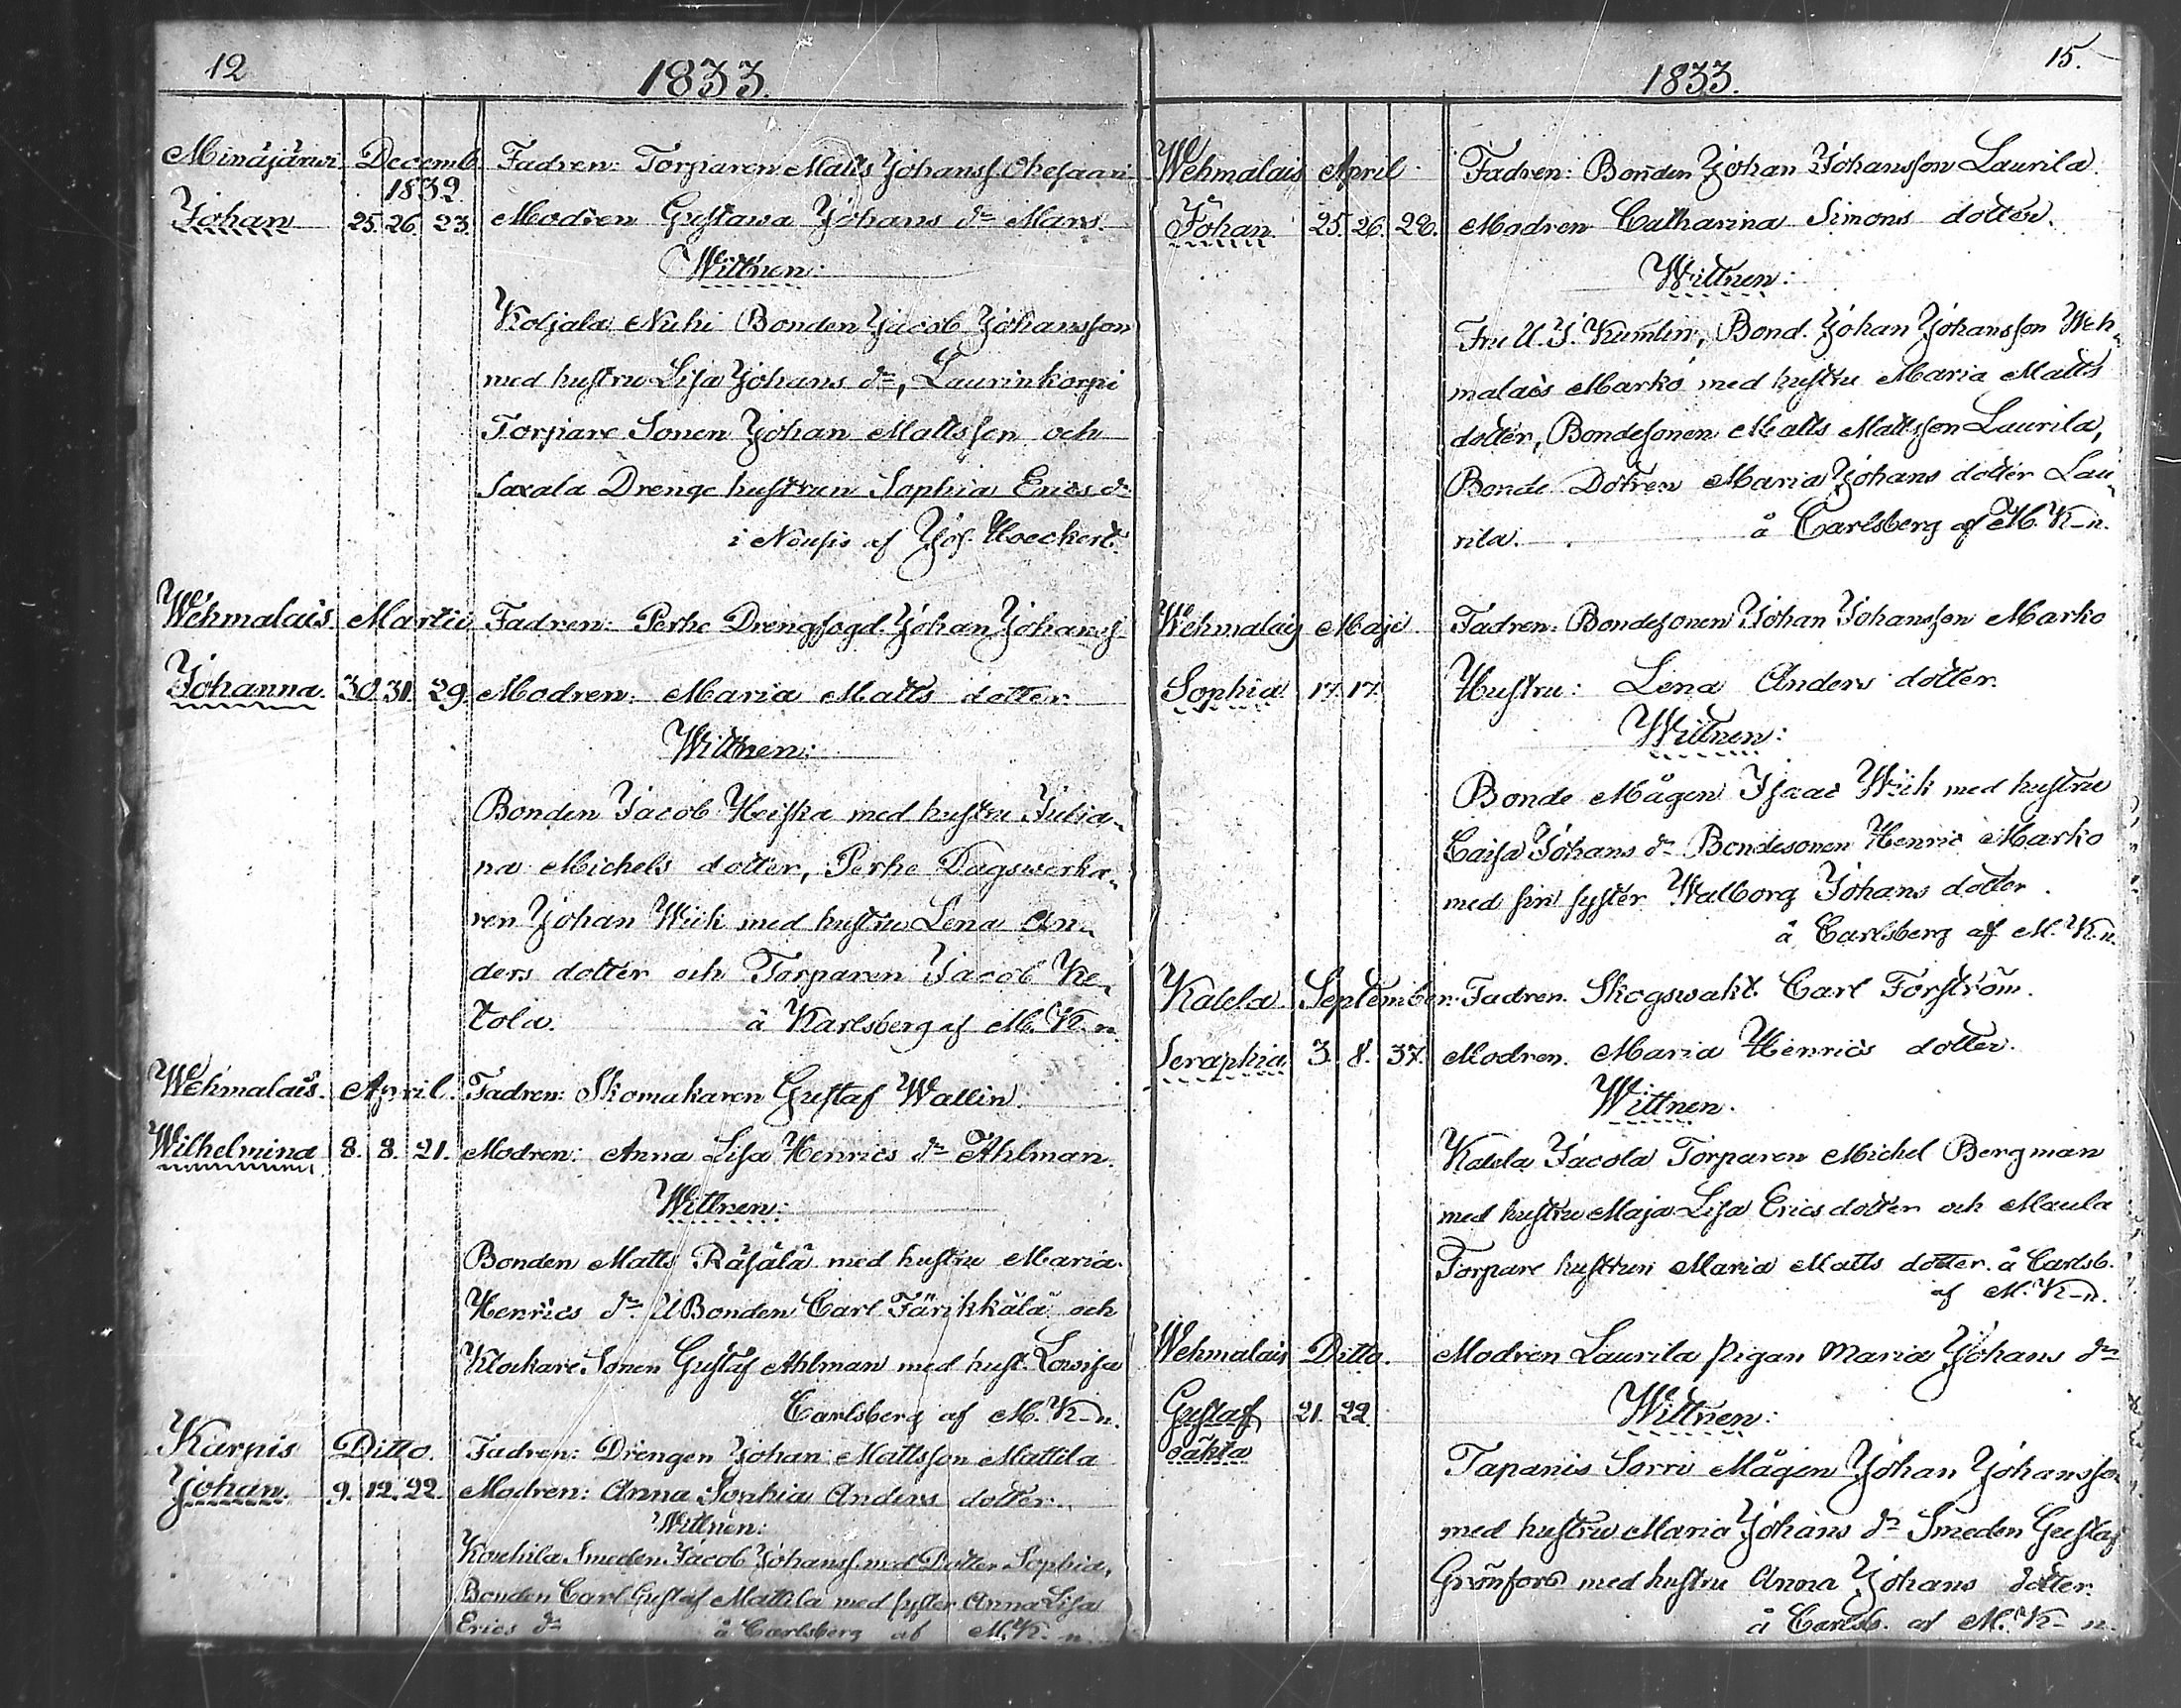 12
1833.
Minäjärwi Decemb. Fadren: Torparen Matts Johanss. Ohesaari
1832.
Johan 25. 26. 23. Modren Gustawa Johans dr Mars.
Wittnen:
Koljala Nuhi Bonden Jacob Johansson
med hustru Lisa Johans dr, Laurinkorpi
Torpare Sonen Johan Mattsson och
Saxala Drenge hustrun Sophia Erics dr
i Nousis af Joh. Hoeckert.
Wehmalais Martii Fadren: Perhe Drengfogd. Johan Johanss.
Johanna. 30. 31. 29. Modren: Maria Matts dotter.
Wittnen:
Bonden Jacob Heiska med hustru Julia-
na Michels dotter, Perhe Dagswerka-
ren Johan Wiik med hustru Lena An-
ders dotter och Torparen Jacob Ke-
tola. å Karlsberg af M. K-n.
Wehmalais. April. Fadren: Skomakaren Gustaf Wallin.
Wilhelmina 8. 8. 21. Modren: Anna Lisa Henrics dr Ahlman.
Wittnen:
Bonden Matts Räsälä med hustru Maria
Henrics dr. U Bonden Carl Färikkälä och
Klockare Sonen Gustaf Ahlman med hust. Lowisa
Carlsberg af M. K-n.
Karpis Ditto. Fadren: Drengen Johan Mattsson Mattila
Johan. 9. 12. 22. Modren: Anna Sophia Anders dotter.
Wittnen:
Kouhila Smeden Jacob Johanss. med Dotter Sophia,
Bonden Carl Gustaf Mattila med syster Anna Lisa
Erics dr å Carlsberg af M. K-n.
15.
1833.
Wehmalais April Fadren: Bonden Johan Johansson Laurila.
Johan. 25. 26. 28. Modren Catharina Simons dotter.
Wittnen:
Fru U. J. Kumlin, Bond. Johan Johansson Weh-
malais Marko med hustru Maria Matts
dotter, Bondesonen Matts Mattsson Laurila,
Bonde Dotren Maria Johans dotter Lau-
rila. å Carlsberg af M. K-n.
Wehmalais Maji Fadren: Bondesonen Johan Johansson Marko
Sophia 17. 17. Hustru: Lena Anders dotter.
Wittnen:
Bonde Mågen Isaac Wiik med hustru
Caisa Johans dr Bondesonen Henric Marko
med sin syster Walborg Johans dotter.
å Carlsberg af M. K-n.
Kalela September. Fadren. Skogswakt. Carl Forström.
Seraphia 3. 8. 37. Modren. Maria Henrics dotter.
Wittnen.
Kalela Jacola Torparen Michel Bergman
med hustru Maja Lisa Erics dotter och Maula
Torpare hustrun Maria Matts dotter. å Carlsb.
af M. K-n.
Wehmalais Ditto. Modren Laurila pigan Maria Johans dr
Gustaf 21. 22. Wittnen:
oäkta
Tapanis Sorri Mågen Johan Johansson
med hustru Maria Johans dr Smeden Gustaf
Grönfors med hustru Anna Johans dotter.
å Carlsb. af M. K-n.